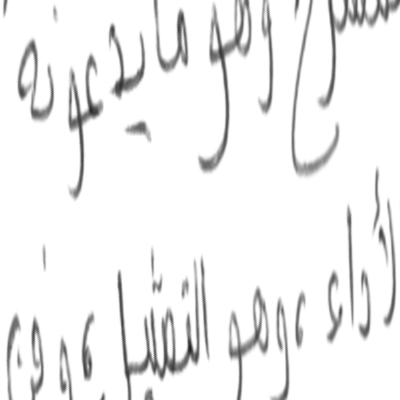 المسرح وهو ما يدعونه
لأداء، وهو التمثيل، وفن